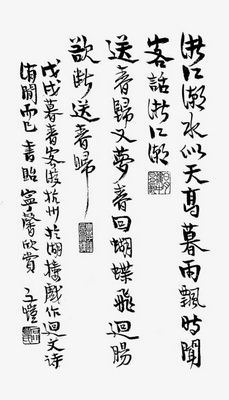 浙江潮水似天高暮雨飄時聞
客話浙江潮
送春歸又夢春回蝴蝶飛迴腸
欲斷送春歸
戊戌暮春客游杭州於湖樓戲作迴文詩
消閒而已 書貽寧馨欣賞 子愷